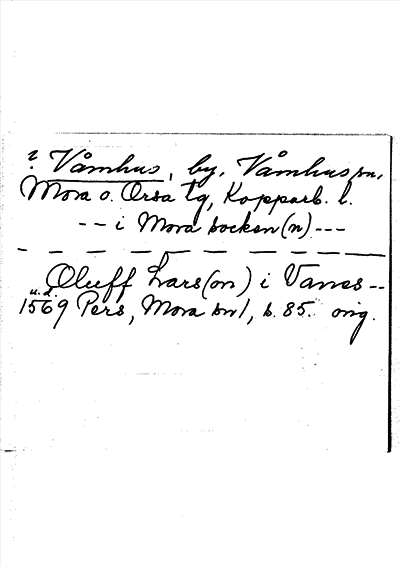 ? Våmhus, by, Våmhus sn,
Mora o. Orsa tg, Kopparb. l.
-- i Mora socken(n) ---
Oluff Lars(on) i Vames --
u.d.
1569 Pers, Mora sn 1, s. 85. orig.